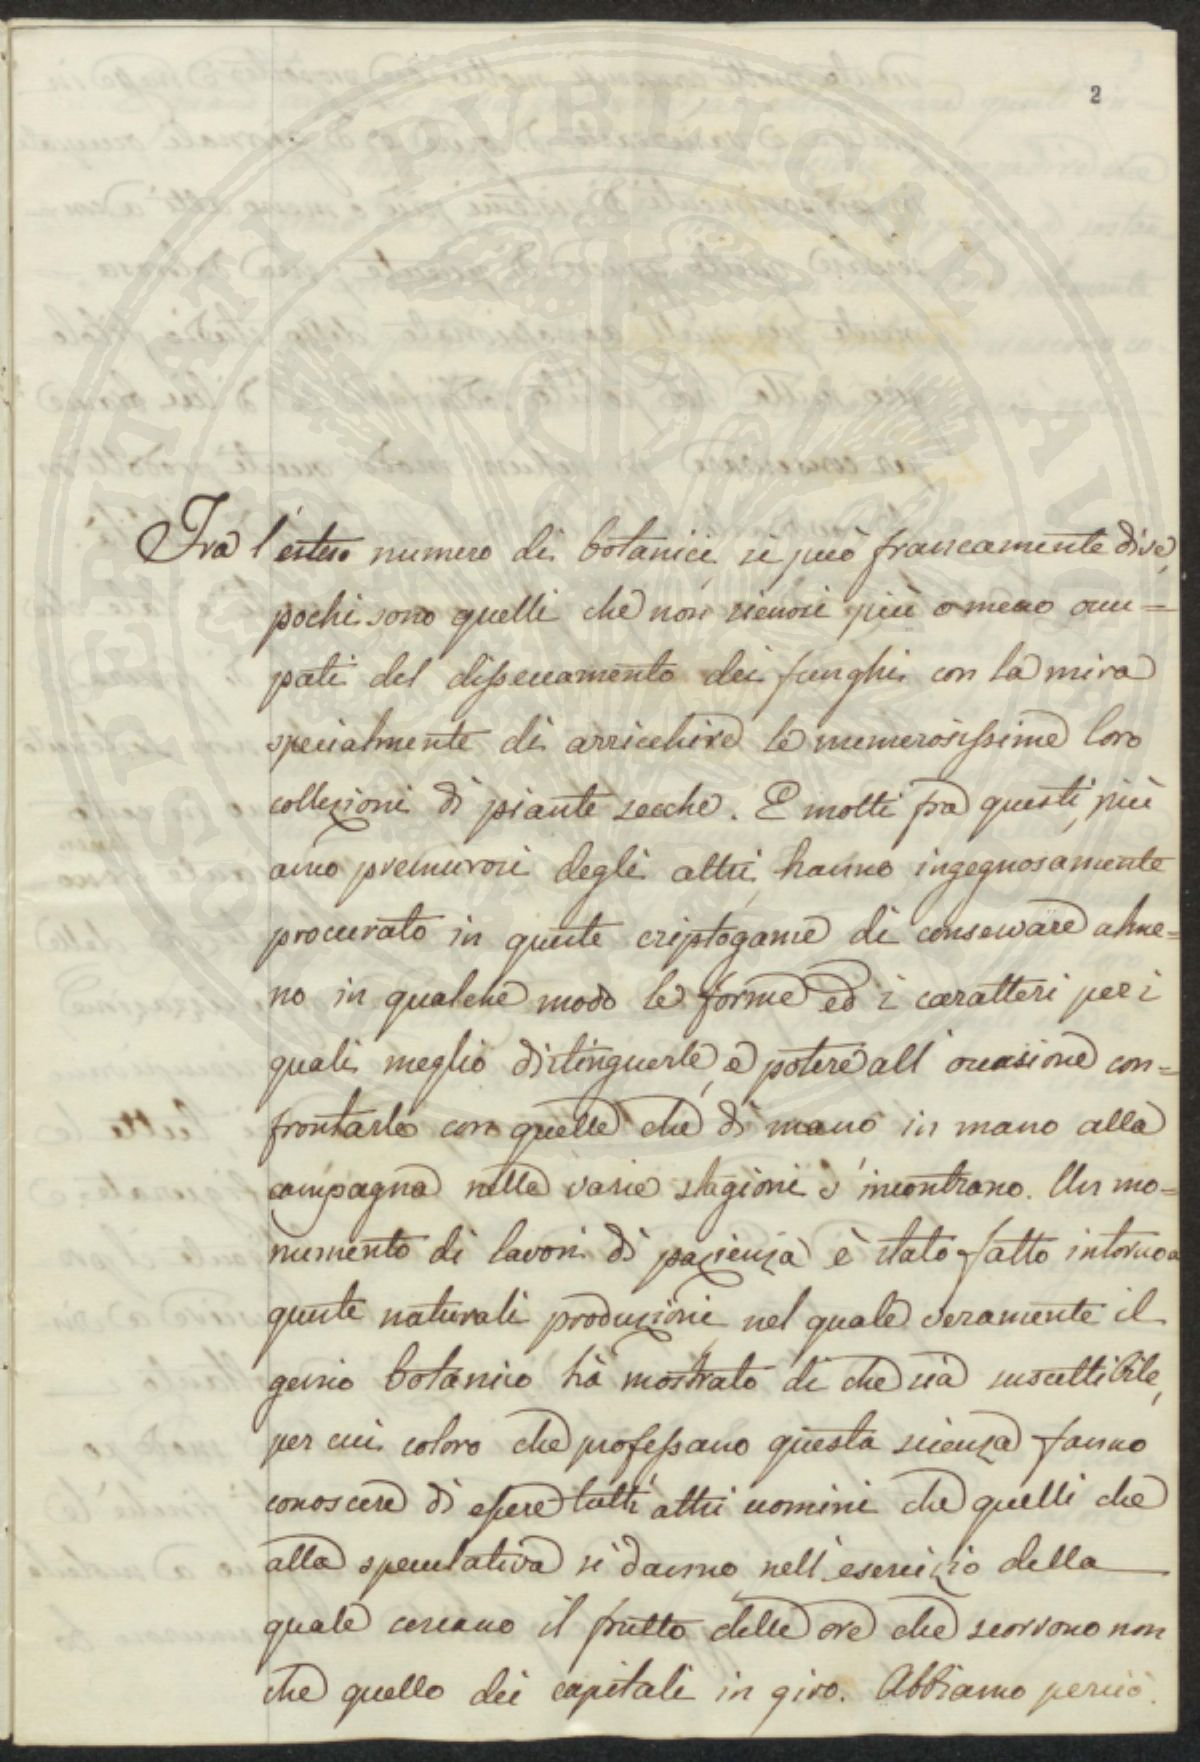 2
Fra l'esteso numero di botanici, si può francamente dire,
pochi sono quelli che non siensi più o meno occu=
pati del disseccamento dei funghi con la mira
specialmente di arricchire le numerosissime loro
collezioni di piante secche. E molti fra questi, più
anco premurosi degli altri, hanno ingegnosamente
procurato in queste criptogame di conservare alme=
no in qualche modo le forme ed i caratteri per i
quali meglio distinguerle, e potere all'occasione con=
frontarle con quelle che di mano in mano alla
campagna nelle varie stagioni s'incontrano. Un mo=
numento di lavori di pazienza è stato fatto intorno a
queste naturali produzioni, nel quale veramente il
genio botanico hà mostrato di che sia suscettibile,
per cui coloro che professano questa scienza fanno
conoscere di essere tutti altri uomini che quelli che
alla speculativa si danno, nell'esercizio della
quale cercano il frutto delle ore che scorrono non
che quello dei capitali in giro. Abbiamo perciò
PROSPERITATI PUBLICAE AUGENDAE